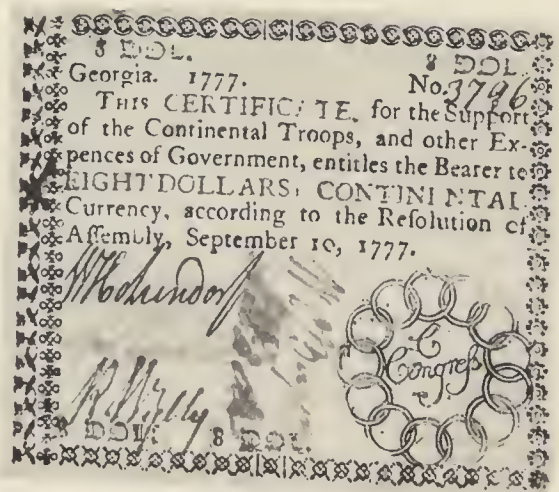 8 DOL. 8 DOL.
Georgia. 1777. No. 3796
THIS CERTIFICATE, for the Support
of the Continental Troops, and other Ex-
pences of Government, entitles the Bearer to
EIGHT DOLLARS, CONTINENTAL
Currency, according to the Reſolution of
Aſſembly, September 10, 1777.
Congreſs
8 DOL. 8 DOL.